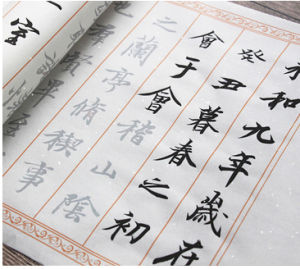 和九年歲在
癸丑暮春之初
會于會稽山陰
之蘭亭脩稧事
室